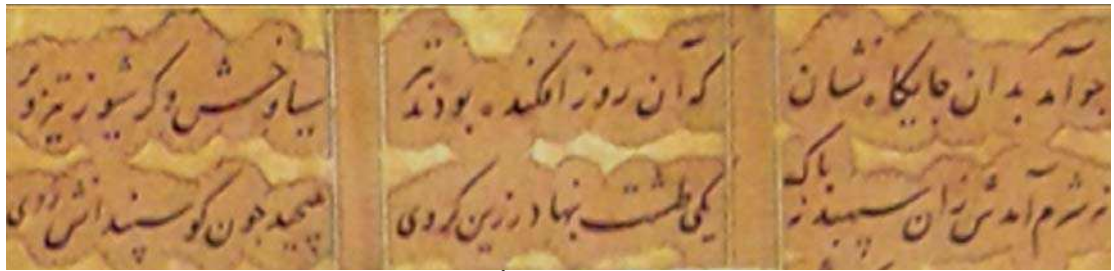 جو آمد بدان جایکاه نشان
که آن روز افکنده بودند تیر
سیاوخش و کرسیوز تیزویر
نه شرم آمدش زان سپهبد نه باک
یکی طشت بنهاد زرین کروی
بپیچید جون کوسپندانش روی